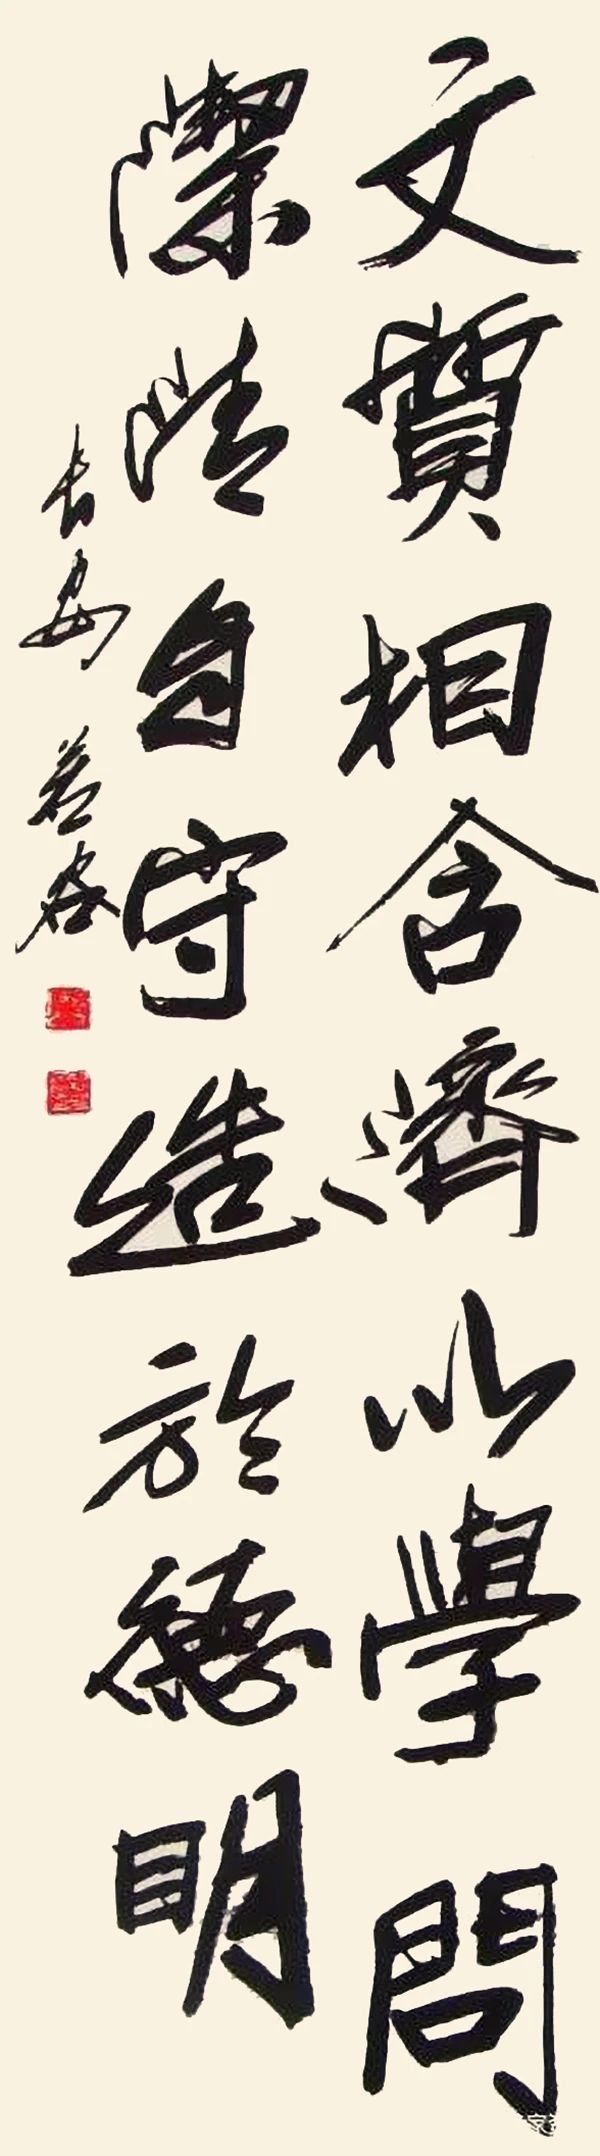 文質相含濟以學問
潔情自守造於德明
長安